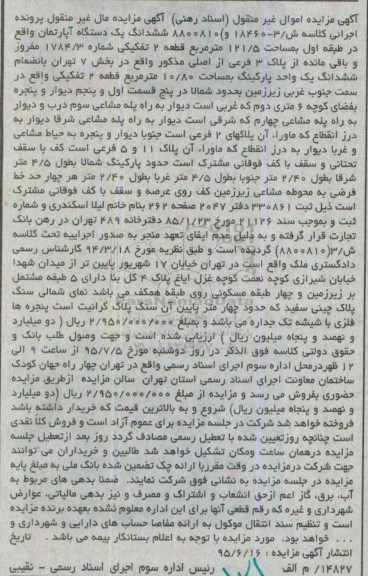 آگهی مزایده اموال غیر منقول (اسناد رهنی) آگهی مزایده مال غیر منقول پرونده
اجرائی کلاسه ش/۳-۱۸۴۶۰ و(۸۸۰۰۸۱۰ ششدانگ یک دستگاه آپارتمان واقع
در طبقه اول بمساحت ۱۲۱/۵ مترمربع قطعه ۲ تفکیکی شماره ۱۷۸۴/۳ مفروز
و باقی مانده از پلاک ۳ فرعی از اصلی مذکور واقع در بخش ۷ تهران بانضمام
ششدانگ یک واحد پارکینگ بمساحت ۱۰/۸۰ مترمربع قطعه ۲ تفکیکی واقع در
سمت جنوب غربی زیرزمین بحدود شمالا در پنج قسمت اول و پنجم دیوار و پنجره
بفضای کوچه ۶ متری دوم که غربی است دیوار به راه پله مشاعی سوم درب و دیوار
به راه پله مشاعی چهارم که شرقی است دیوار به راه پله مشاعی شرقا دیوار به
درز انقطاع که ماوراء آن پلاکهای ۲ فرعی است جنوبا دیوار و پنجره به حیاط مشاعی
و غربا دیوار به درز انقطاع که ماوراء آن پلاک ۱۱ و ۵ فرعی است کف با سقف
تحتانی و سقف با کف فوقانی مشترک است حدود پارکینگ شمالا بطول ۴/۵ متر
شرقا بطول ۲/۴۰ متر جنوبا بطول ۴/۵ متر غربا بطول ۲/۴۰ متر هر چهار حد خط
فرضی به محوطه مشاعی زیرزمین کف روی عرصه و سقف با کف فوقانی مشترک
است ذیل ثبت ۳۳۰۸۶۱ دفتر ۲۰۴۷ صفحه ۲۶۲ بنام خانم لیلا اسکندری و شماره
ثبت و بموجب سند ۲۱۱۲۶ مورخ ۸۵/۱/۲۳ دفترخانه ۴۸۹ تهران در رهن بانک
تجارت قرار گرفته و به دلیل عدم ایفای تعهد منجر به صدور اجراییه تحت کلاسه
ش/۳(۸۸۰۰۸۱۰) گردیده است و طبق نظریه مورخ ۹۴/۳/۱۸ کارشناس رسمی
دادگستری ملک واقع است در تهران خیابان ۱۷ شهریور پایین تر از میدان شهدا
خیابان شیرازی کوچه نعمت کوچه غزل ایاغ پلاک ۴ کل بنا دارای ۵ طبقه مشتمل
بر زیرزمین و چهار طبقه مسکونی روی طبقه همکف می باشد نمای شمالی سنگ
پلاک چینی سفید که حدود چهار متر پایین آن سنگ پلاک گرانیت است پنجره ها
فلزی با شیشه تک جداره می باشد و بمبلغ ۲/۹۵۰/۰۰۰/۰۰۰ ریال ( دو میلیارد
و نهصد و پنجاه میلیون ریال ) ارزیابی شده است و جهت وصول طلب بانک و
حقوق دولتی کلاسه فوق الذکر در روز دوشنبه مورخ ۹۵/۷/۵ از ساعت ۹ الی
۱۲ ظهردرمحل اداره سوم اجرای اسناد رسمی واقع در تهران چهار راه جهان کودک
ساختمان معاونت اجرای اسناد رسمی استان تهران سالن مزایده ازطریق مزایده
حضوری بفروش می رسد و مزایده از مبلغ ۲/۹۵۰/۰۰۰/۰۰۰ ریال (دو میلیارد
و نهصد و پنجاه میلیون ریال) شروع و به بالاترین قیمت که خریدار داشته باشد
فروخته خواهد شد شرکت در جلسه مزایده برای عموم آزاد است و فروش کلاً نقدی
است چنانچه روزتعیین شده با تعطیل رسمی مصادف گردد روز بعد ازتعطیل جلسه
مزایده درهمان ساعت ومکان تشکیل خواهد شد طالبین و خریداران می توانند
جهت شرکت درمزایده در وقت مقرربا ارائه چک تضمین شده بانک ملی به مبلغ پایه
مزایده در جلسه مزایده به نشانی فوق شرکت نمایند. ضمنا بدهی های مربوط به
آب، برق، گاز اعم ازحق انشعاب و اشتراک و مصرف و نیز بدهی مالیاتی، عوارض
شهرداری و غیره که رقم قطعی آنها برای این اداره معلوم نشده بعهده برنده مزایده
است و تنظیم سند انتقال موکول به ارائه مفاصا حساب های دارایی و شهرداری و
. . . خواهد بود. مورد مزایده با توجه به اعلام بستانکار بیمه می باشد . تاریخ
انتشار آگهی مزایده : ۹۵/۶/۱۶
۱۴۸۲۷/ م الف رئیس اداره سوم اجرای اسناد رسمی - نقیبی